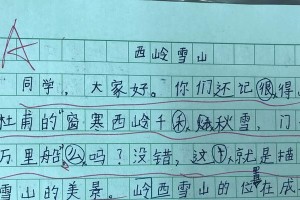 西岭雪山
同学，大家好。你们还记得，
杜甫的"窗寒西岭千秋雪，门
万里船"吗？没错，这就是描
雪山的美景。岭西雪山的位置在成